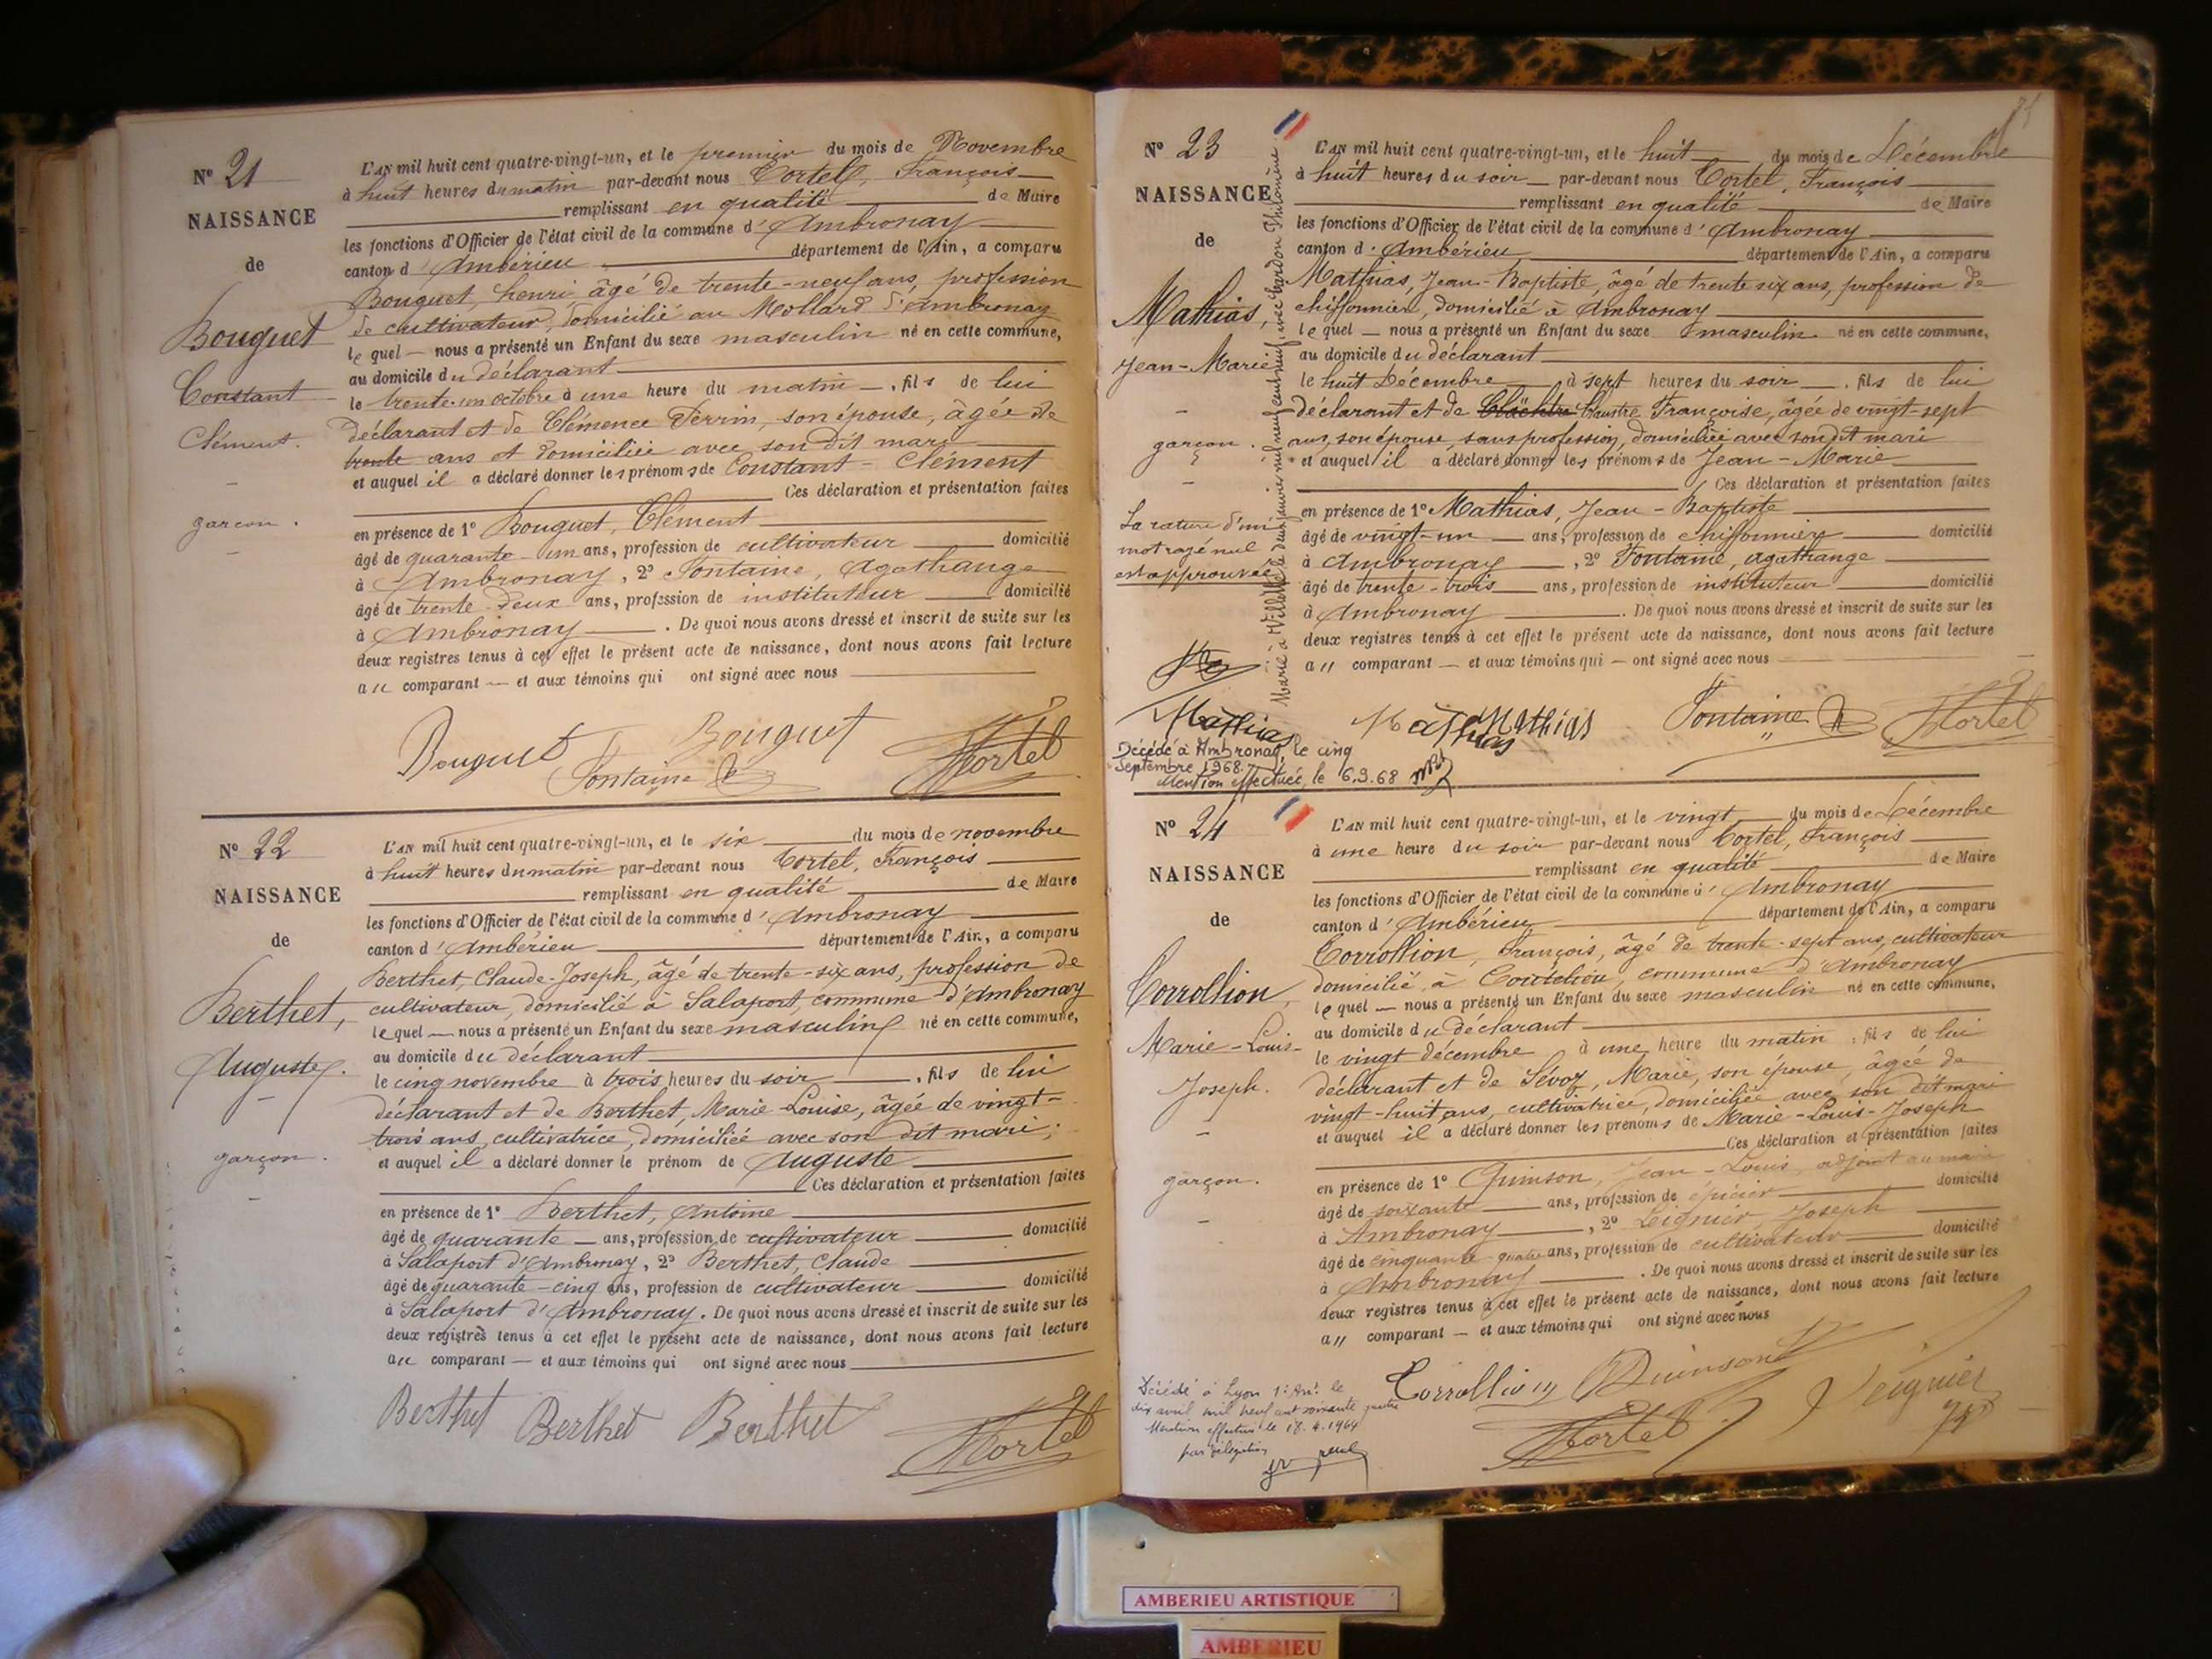 Nº 21
NAISSANCE
de
Bouquet
Constant
Clément.
garcon.
L'AN mil huit cent quatre-vingt-un, et le premier du mois de Novembre
à huit heures du matin par-devant nous Tortel, François
remplissant en qualité de Maire
les fonctions d'Officier de l'état civil de la commune d'Ambronay
canton d'Ambérieu département de l'Ain, a comparu
Bouquet, henri âgé de trente-neuf ans, profession
de cultivateur, domicilié au Mollard d'Ambronay
lequel nous a présenté un Enfant du sexe masculin né en cette commune,
au domicile du déclarant
le trente-un octobre à une heure du matin, fils de lui
déclarant et de Clémence Perrin, son épouse, âgée de
trente ans et domiciliée avec son dit mari
et auquel il a déclaré donner les prénoms de Constant - Clément
Ces déclaration et présentation faites
en présence de 1º Bouquet, Clément
âgé de quarante-un ans, profession de cultivateur domicilié
à Ambronay, 2º Fontaine, Agathange
âgé de trente-deux ans, profession de instituteur domicilié
à Ambronay. De quoi nous avons dressé et inscrit de suite sur les
deux registres tenus à cet effet le présent acte de naissance, dont nous avons fait lecture
au comparant et aux témoins qui ont signé avec nous
Bouquet Bouquet
Fontaine Tortel
Nº 22
NAISSANCE
de
Berthet,
Auguste.
garçon.
L'AN mil huit cent quatre-vingt-un, et le six du mois de novembre
à huit heures du matin par-devant nous Tortel, François
remplissant en qualité de Maire
les fonctions d'Officier de l'état civil de la commune d'Ambronay
canton d'Ambérieu département de l'Ain, a comparu
Berthet, Claude-Joseph, âgé de trente-six ans, profession de
cultivateur, domicilié à Salaport, commune d'Ambronay
lequel nous a présenté un Enfant du sexe masculin né en cette commune,
au domicile du déclarant
le cinq novembre à trois heures du soir, fils de lui
déclarant et de Berthet, Marie-Louise, âgée de vingt-
trois ans, cultivatrice, domiciliée avec son dit mari;
et auquel il a déclaré donner le prénom de Auguste
Ces déclaration et présentation faites
en présence de 1º Berthet, Antoine
âgé de quarante ans, profession de cultivateur domicilié
à Salaport d'Ambronay, 2º Berthet, Claude
âgé de quarante-cinq ans, profession de cultivateur domicilié
à Salaport d'Ambronay. De quoi nous avons dressé et inscrit de suite sur les
deux registres tenus à cet effet le présent acte de naissance, dont nous avons fait lecture
au comparant et aux témoins qui ont signé avec nous
Berthet Berthet Berthet Tortel
Nº 23
NAISSANCE
de
Mathias,
Jean-Marie
garçon.
La rature d'un
mot rayé nul
est approuvée
Marié à Villette le deux janvier mil neuf cent neuf avec Philomène
L'AN mil huit cent quatre-vingt-un, et le huit du mois de Décembre
à huit heures du soir par-devant nous Tortel, François
remplissant en qualité de Maire
les fonctions d'Officier de l'état civil de la commune d'Ambronay
canton d'Ambérieu département de l'Ain, a comparu
Mathias, Jean-Baptiste, âgé de trente six ans, profession de
chiffonnier, domicilié à Ambronay
lequel nous a présenté un Enfant du sexe masculin né en cette commune,
au domicile du déclarant
le huit Décembre à sept heures du soir, fils de lui
déclarant et de Claustre Françoise, âgée de vingt-sept
ans, son épouse, sans profession, domiciliée avec son dit mari
et auquel il a déclaré donner les prénoms de Jean-Marie
Ces déclaration et présentation faites
en présence de 1º Mathias, Jean-Baptiste
âgé de vingt-un ans, profession de chiffonnier domicilié
à Ambronay, 2º Fontaine, Agathange
âgé de trente-trois ans, profession de instituteur domicilié
à Ambronay. De quoi nous avons dressé et inscrit de suite sur les
deux registres tenus à cet effet le présent acte de naissance, dont nous avons fait lecture
au comparant et aux témoins qui ont signé avec nous
Mathias Mathias Mathias Fontaine Tortel
Décédé à Ambronay le cinq
Septembre 1968.
Mention effectuée le 6.9.68
Nº 24
NAISSANCE
de
Corrollion,
Marie-Louis-
Joseph.
garçon.
L'AN mil huit cent quatre-vingt-un, et le vingt du mois de Décembre
à une heure du soir par-devant nous Tortel, François
remplissant en qualité de Maire
les fonctions d'Officier de l'état civil de la commune d'Ambronay
canton d'Ambérieu département de l'Ain, a comparu
Corrollion, François, âgé de trente-sept ans, cultivateur
domicilié à commune d'Ambronay
lequel nous a présenté un Enfant du sexe masculin né en cette commune,
au domicile du déclarant
le vingt décembre à une heure du matin, fils de lui
déclarant et de Sévoz, Marie, son épouse, âgée de
vingt-huit ans, cultivatrice, domiciliée avec son dit mari
et auquel il a déclaré donner les prénoms de Marie-Louis-Joseph
Ces déclaration et présentation faites
en présence de 1º Quinson, Jean-Louis, adjoint au maire
âgé de soixante ans, profession de épicier domicilié
à Ambronay, 2º Leignier, Joseph
âgé de cinquante quatre ans, profession de cultivateur domicilié
à Ambronay. De quoi nous avons dressé et inscrit de suite sur les
deux registres tenus à cet effet le présent acte de naissance, dont nous avons fait lecture
au comparant et aux témoins qui ont signé avec nous
Corrollion Quinson Leignier
Tortel
Décédé à Lyon 1er Arr. le
dix avril mil neuf cent soixante quatre
Mention effectuée le 18.4.1964
par délégation
AMBERIEU ARTISTIQUE
AMBERIEU